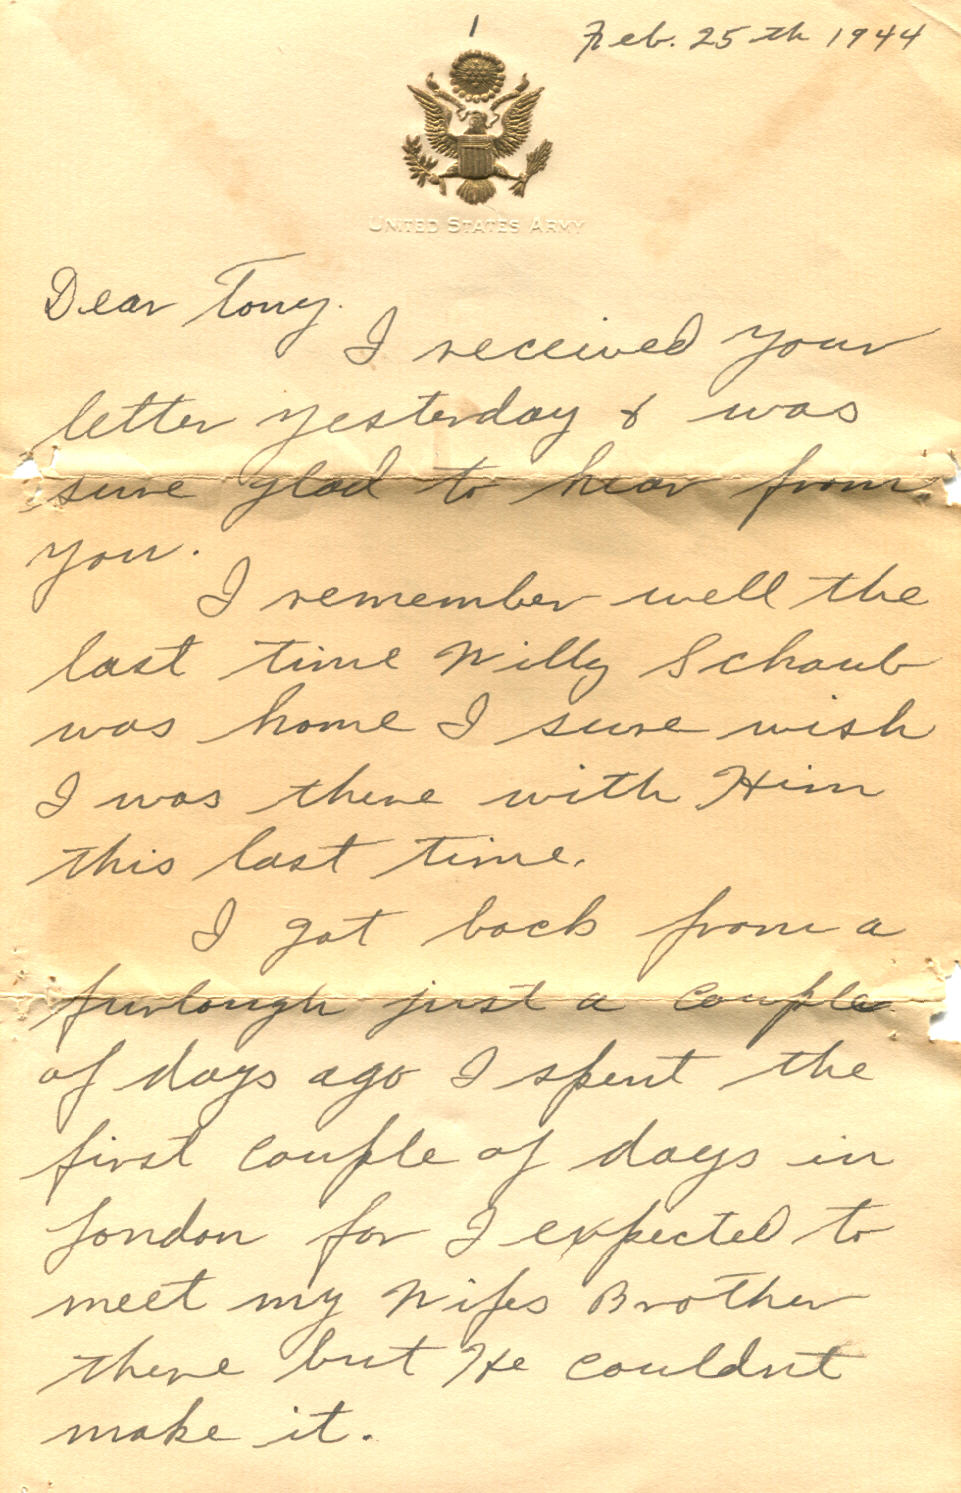 1
Feb. 25th 1944
UNITED STATES ARMY
Dear Tony.
I received your
letter yesterday & was
sure glad to hear from
you.
I remember well the
last time Willy Schaub
was home I sure wish
I was there with Him
this last time.
I got back from a
furlough just a couple
of days ago I spent the
first couple of days in
London for I expected to
meet my Wifes Brother
there but He couldnt
make it.